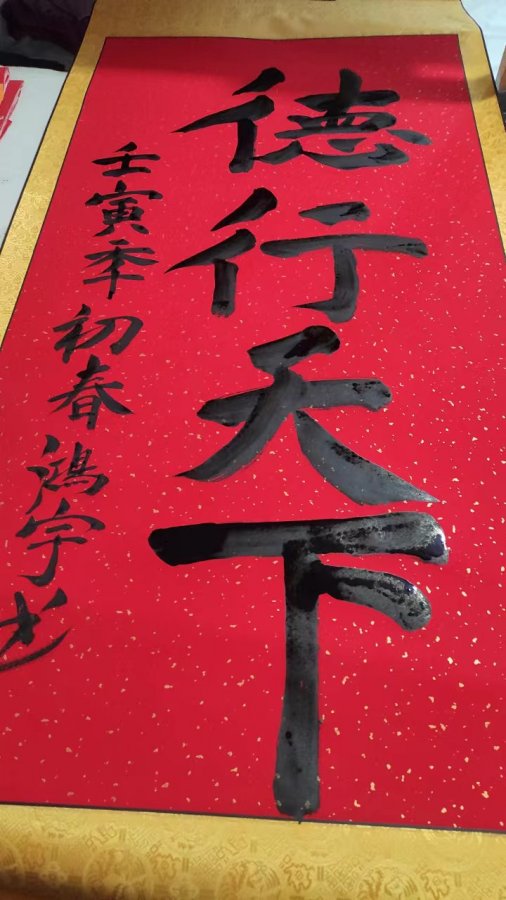 德行天下
壬寅年初春鸿宇书